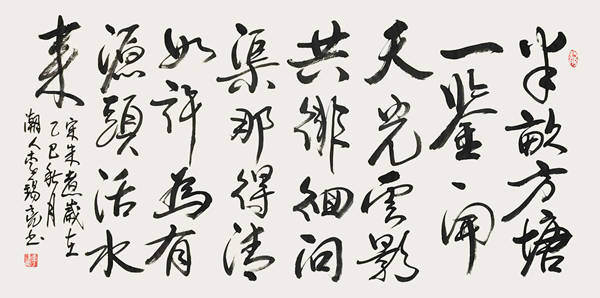 半畝方塘
一鑒開
天光雲影
共徘徊问
渠那得清
如許為有
源頭活水
来
宋朱熹歲在
乙巳秋月
潮人李錫书